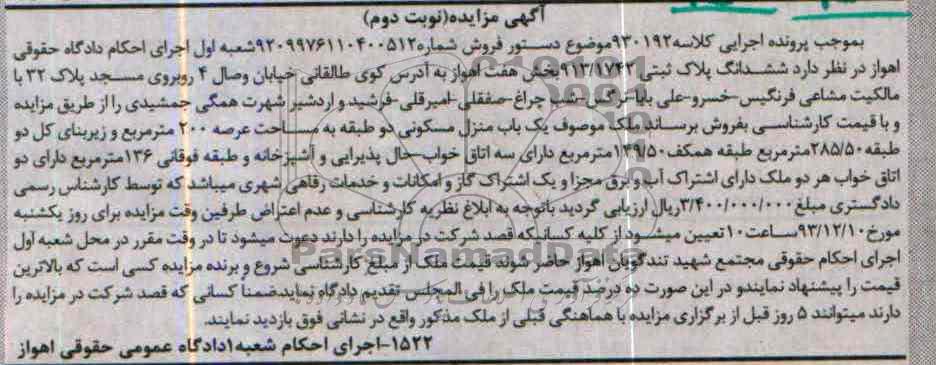 آگهی مزایده(نوبت دوم)
بموجب پرونده اجرایی کلاسه۹۳۰۱۹۲موضوع دستور فروش شماره۹۲۰۹۹۷۶۱۱۰۴۰۰۵۱۲شعبه اول اجرای احکام دادگاه حقوقی
اهواز در نظر دارد ششدانگ پلاک ثبتی ۹۱۳/۱۷۴۳بخش هفت اهواز به آدرس کوی طالقانی خیابان وصال ۴ روبروی مسجد پلاک ۳۲ با
مالکیت مشاعی فرنگیس-خسرو-علی بابا-نرگس-شب چراغ-صفقلی-امیرقلی-فرشید و اردشیر شهرت همگی جمشیدی را از طریق مزایده
و با قیمت کارشناسی بفروش برساند.ملک موصوف یک باب منزل مسکونی دو طبقه به مساحت عرصه ۲۰۰ مترمربع و زیربنای کل دو
طبقه۲۸۵/۵۰مترمربع طبقه همکف۱۴۹/۵۰مترمربع دارای سه اتاق خواب-حال پذیرایی و آشپزخانه و طبقه فوقانی ۱۳۶مترمربع دارای دو
اتاق خواب هر دو ملک دارای اشتراک آب و برق مجزا و یک اشتراک گاز و امکانات و خدمات رفاهی شهری میباشد که توسط کارشناس رسمی
دادگستری مبلغ ۳/۴۰۰/۰۰۰/۰۰۰ریال ارزیابی گردید باتوجه به ابلاغ نظریه کارشناسی و عدم اعتراض طرفین وقت مزایده برای روز یکشنبه
مورخ۹۳/۱۲/۱۰ساعت۱۰تعیین میشود از کلیه کسانیکه قصد شرکت در مزایده را دارند دعوت میشود تا در وقت مقرر در محل شعبه اول
اجرای احکام حقوقی مجتمع شهید تندگویان اهواز حاضر شوند قیمت ملک از مبلغ کارشناسی شروع و برنده مزایده کسی است که بالاترین
قیمت را پیشنهاد نمایندو در این صورت ده درصد قیمت ملک را فی المجلس تقدیم دادگاه نماید.ضمنا کسانی که قصد شرکت در مزایده را
دارند میتوانند ۵ روز قبل از برگزاری مزایده با هماهنگی قبلی از ملک مذکور واقع در نشانی فوق بازدید نمایند.
۱۵۲۲-اجرای احکام شعبه۱دادگاه عمومی حقوقی اهواز
ParsNamadData